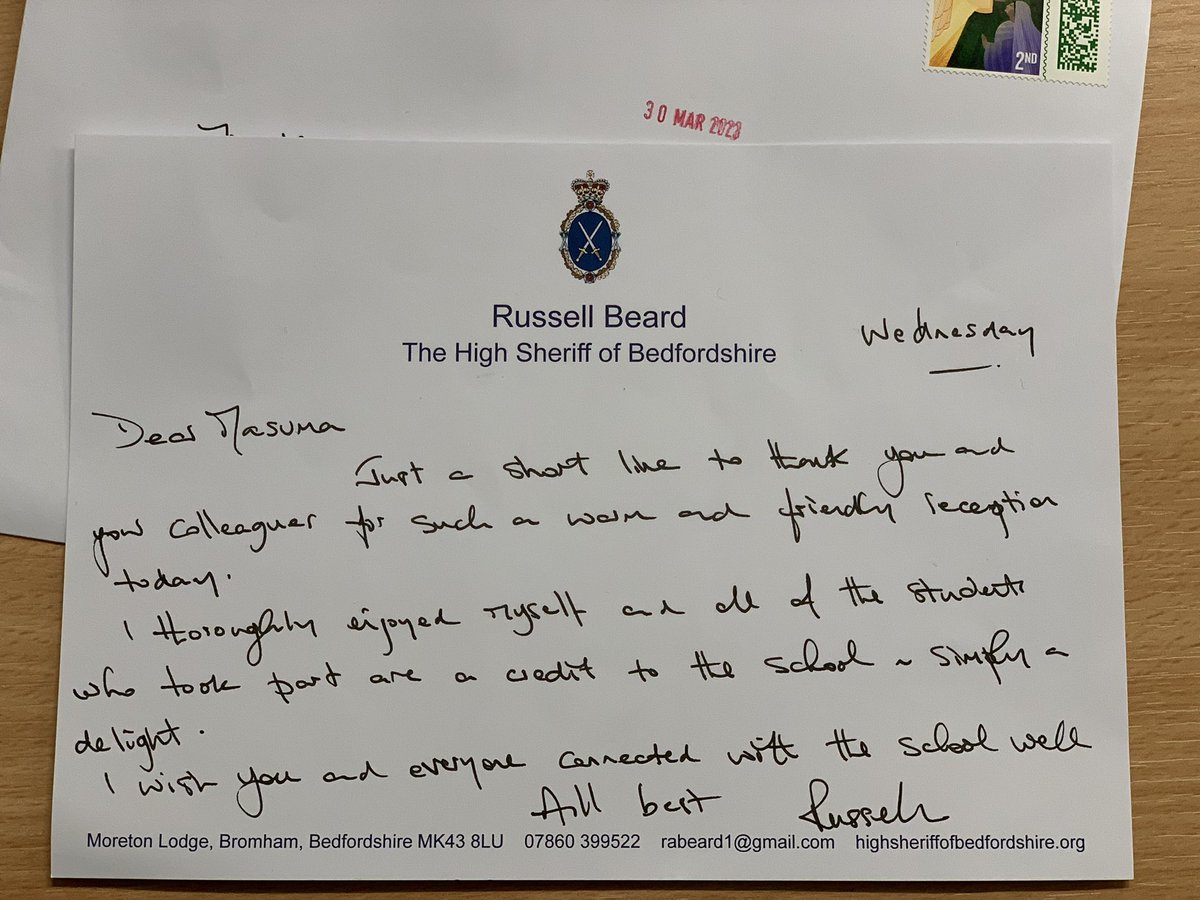 2ND
30 MAR 2023
Russell Beard
The High Sheriff of Bedfordshire
Wednesday
Dear Masuma
Just a short line to thank you and
your colleagues for such a warm and friendly reception
today.
I thoroughly enjoyed myself and all of the students
who took part are a credit to the school ~ simply a
delight.
I wish you and everyone connected with the school well
All best Russell
Moreton Lodge, Bromham, Bedfordshire MK43 8LU 07860 399522 rabeard1@gmail.com highsheriffofbedfordshire.org